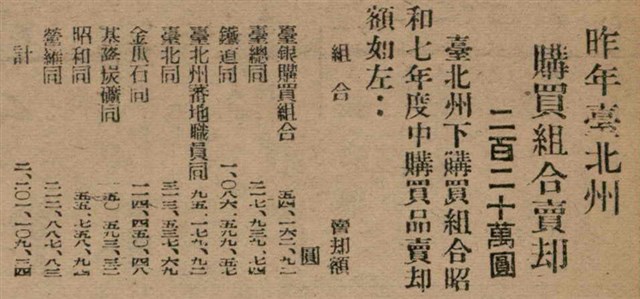 昨年臺北州
購買組合賣却
二百二十萬圓
臺北州下購買組合昭
和七年度中購買品賣却
額如左：
組合 賣却額
圓
臺銀購買組合 五四、一六二、九一
臺總同 二一七、九三九、七四
鐵道同 一、〇八六、五九九、五七
臺北州蕃地職員同 九五、一七九、
臺北同 三一三、五三七、六九
金瓜石同 一一四、四五〇、四八
基隆炭礦同 五〇、五九三、
昭和同 五五、七五八、
營繕同 一一二、八八七、八三
計 二、二〇一、一〇九、三四